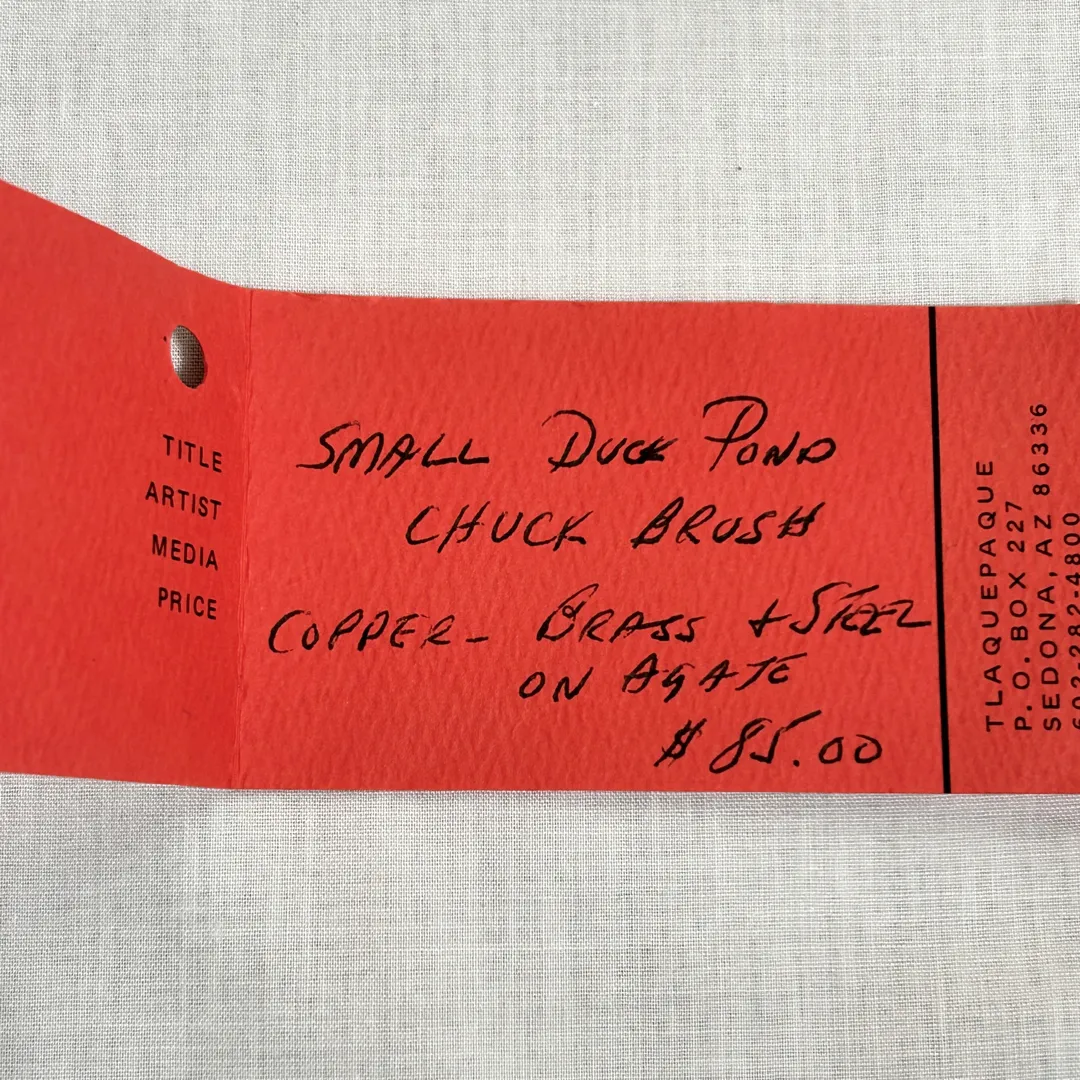 TITLE
ARTIST
MEDIA
PRICE
SMALL DUCK POND
CHUCK BRUSH
COPPER- BRASS + STEEL
ON AGATE
$85.00
TLAQUEPAQUE
P.O. BOX 227
SEDONA, AZ 86336
602-282-4800